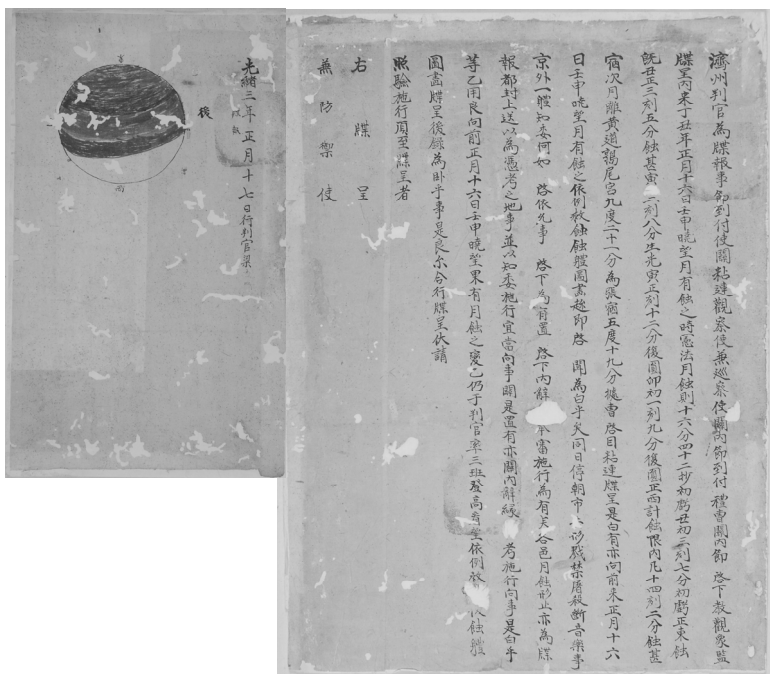 濟州判官為牒報事節到付使關粘連觀察使兼巡察使關內節到付 禮曹關內節 啓下敎觀象監
牒呈內來丁丑年正月十六日壬申曉望月有蝕之時憲法月蝕則十六分四十二抄初虧丑初三刻七分初虧正東蝕
旣丑正三刻五分蝕甚寅 二刻八分生光寅正刻十二分復圓卯初一刻九分復圓正西計蝕限內凡十四刻二分蝕甚
宿次月離黃道鶉尾宮九度二十一分為張宿五度十九分據曹 啓目粘連牒呈是白有亦向前來正月十六
日壬申曉望月有蝕之依例救蝕蝕體圖畫趁即 啓 聞為白乎矣同日停朝市 刑戮禁屠殺斷音樂事
京外一體知委何如 啓依允事 啓下為有置 啓下內辭 奉審施行為有矣各邑月蝕形止亦為牒
報都封上送以為憑考之地事並以知委施行宜當向事關是置有亦關內辭緣 考施行向事是白乎
等乙用良向前正月十六日壬申曉望果有月蝕之變乙仍于判官率三班登高看望依例救 以蝕體
圖畫牒呈後錄為卧乎事是良尔合行牒呈伏請
照驗施行須至牒呈者
右 牒 呈
兼 防 禦 使
後
光緒三年正月十七日行判官梁